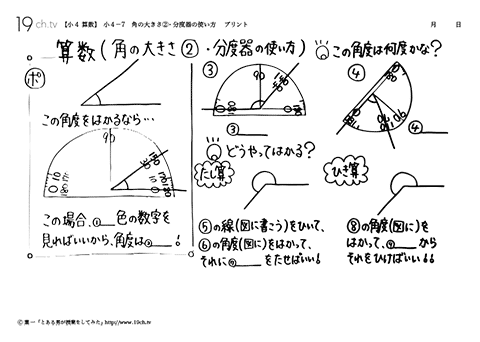 19ch.tv 【小4 算数】 小4-7 角の大きさ②・分度器の使い方 プリント 月 日
算数(角の大きさ②・分度器の使い方)
この角度は何度かな?
ポ
この角度をはかるなら…
90
30
150
0
10
180
この場合、①___色の数字を
見ればいいから、角度は②___!
③
90
140
40
0
180
③
④
90
0
180
④
どうやってはかる?
たし算
⑤の線(図に書こう)をひいて、
⑥の角度(図に)をはかって、
それに⑦___をたせばいい!
ひき算
⑧の角度(図に)を
はかって、⑨___から
それをひけばいい!!
© 葉一「とある男が授業をしてみた」http://www.19ch.tv